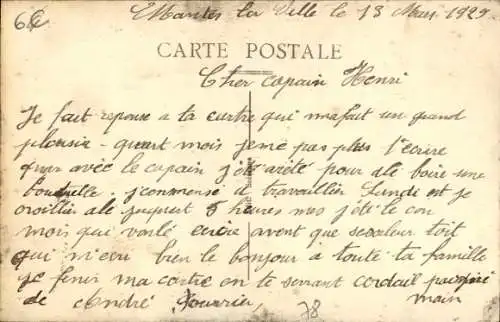 6€
Mantes la Ville le 13 Mars 1929
CARTE POSTALE
Cher copain Henri
Je fait reponse a ta cartre qui ma fait un grand
plousir - quart mois je ne pas plus l'ecrire
quar avec le copain j'éte arété pour alé boire une
bouteille. j'conmensé a travaillier Lundi et je
travaillier alé jusquert 5 heures mes j'été le con
mois que voilé ecrire avent que se valeur toit
qui m'evoi bien le bonjour à toute ta famille
Je fenis ma cartre en te serrant cordail
main
de André Fourrier,
78